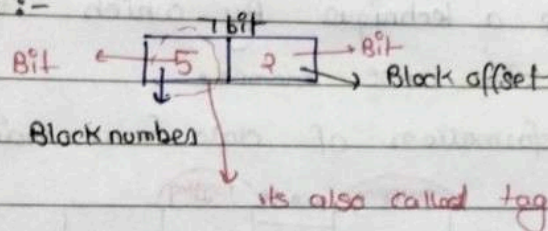 :-
7 bit
Bit 5 2 Bit
Block offset
Block number
its also called tag